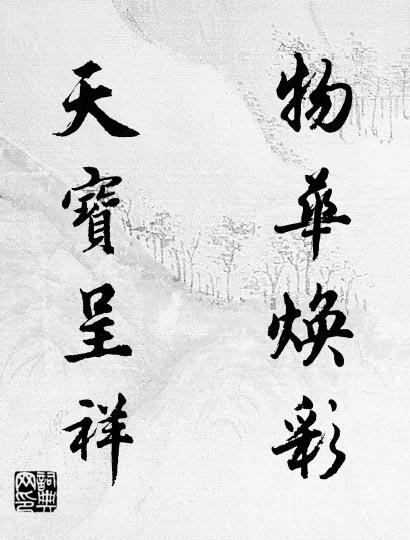 物華煥彩
天寶呈祥
詞典網印